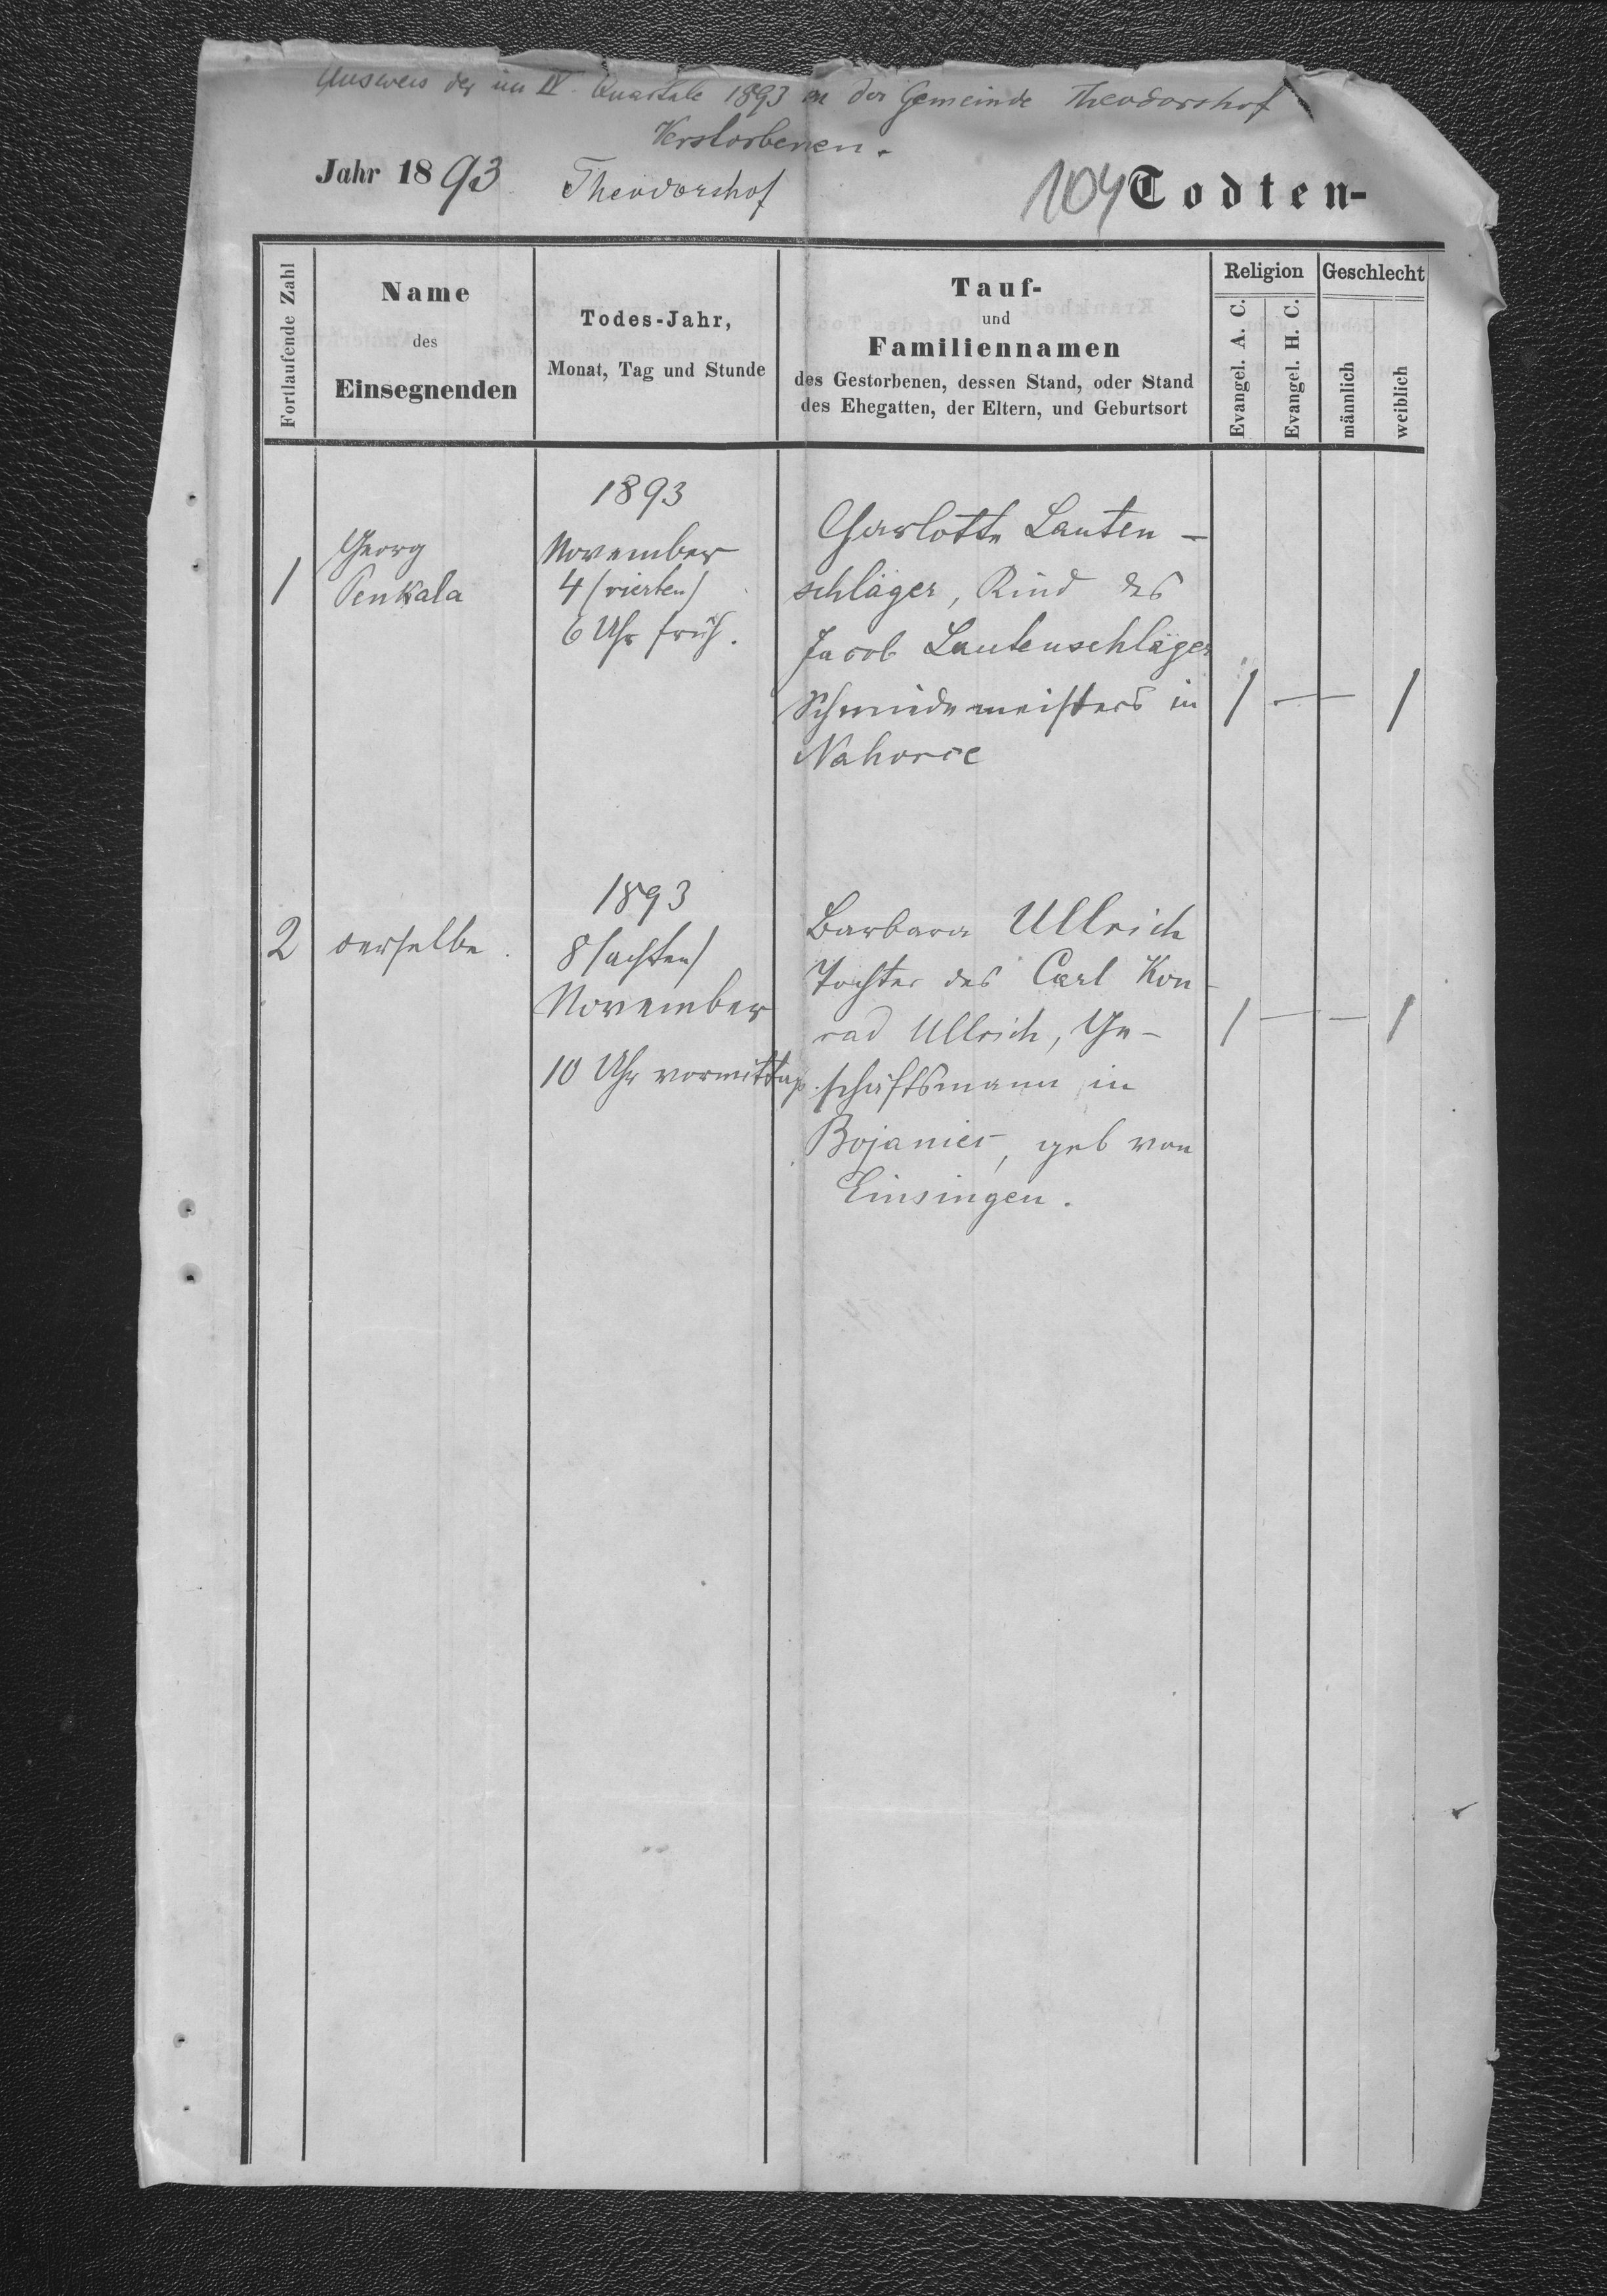 Ausweis der im IV. Quartale 1893 in der Gemeinde Theodorshof
Verstorbenen.
Jahr 1893 Theodorshof 104 Todten-
Fortlaufende Zahl
Name
des
Einsegnenden
Todes-Jahr,
Monat, Tag und Stunde
Tauf-
und
Familiennamen
des Gestorbenen, dessen Stand, oder Stand
des Ehegatten, der Eltern, und Geburtsort
Religion
Evangel. A. C.
Evangel. H. C.
Geschlecht
männlich
weiblich
1
Georg
Penkala
1893
November
4 (vierten)
6 Uhr früh.
Charlotte Lauten-
schläger, Kind des
Jacob Lautenschläger
Schmidemeisters in
Nahorce
1 — 1
2
derselbe.
1893
8 (achten)
November
10 Uhr vormittag.
Barbara Ullrich
Tochter des Carl Kon-
rad Ullrich, Ge-
schäftsmann in
Bojanice, geb von
Einsingen.
1 — — 1